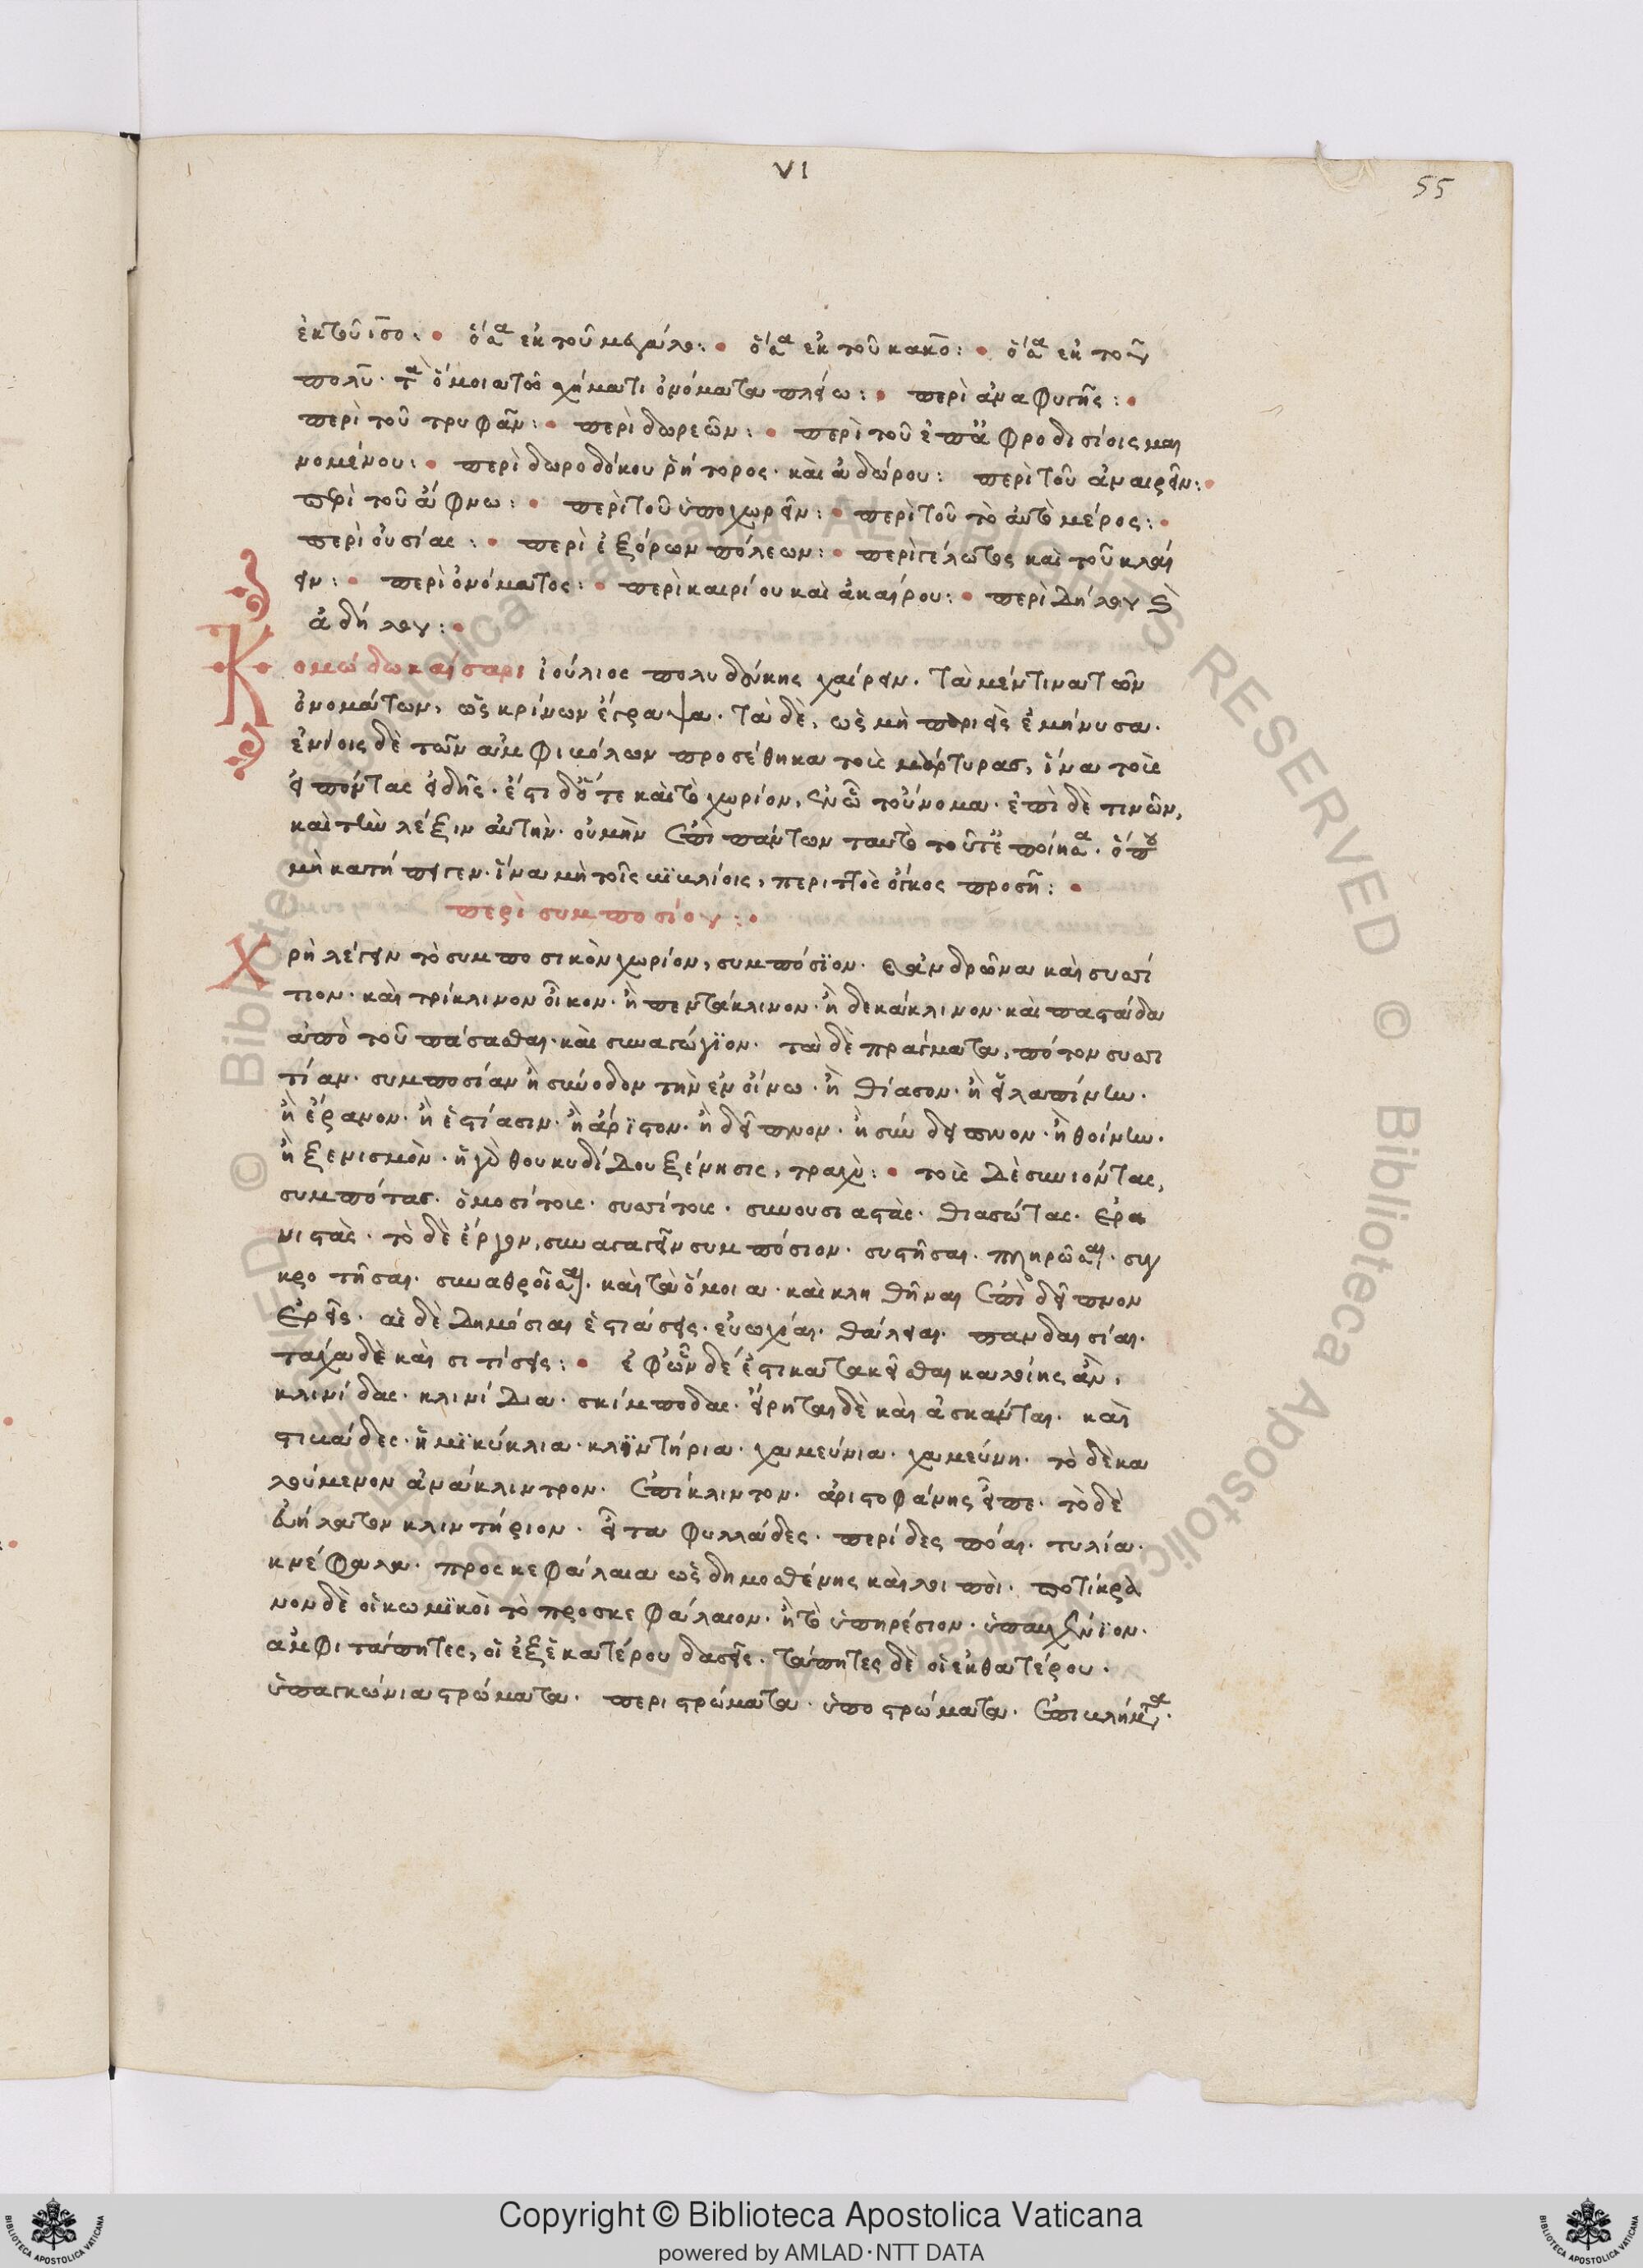 VI
55
ἐκ τοῦ ἰσο: ὅσα ἐκ τοῦ μεγάλου: ὅσα ἐκ τοῦ κακο: ὅσα ἐκ τοῦ
πολυ· τὰ ὅμοια τῶ χήματι ὀνόματα πλείω: περὶ ἀναφυγῆς:
περὶ τοῦ τρυφᾶν: περὶ δωρεῶν: περὶ τοῦ ἐπὰ φροδισίοις μαι
νομένου: περὶ δωροδόκου ῥήτορος· καὶ ἀδώρου: περὶ τοῦ ἀναιρεῖν:
περὶ τοῦ ἄφνω: περὶ τοῦ ὑποχωρεῖν: περὶ τοῦ τὸ αὐτὸ μέρος:
περὶ οὐσίας: περὶ ἐξόρων πόλεων: περὶ γέλωτος καὶ τοῦ κλαί
ειν: περὶ ὀνόματος: περὶ καιρίου καὶ ἀκαίρου: περὶ δήλου καὶ
ἀδήλου:
Κομώδω καίσαρι ἰούλιος πολυδεύκης χαίρειν. τὰ μέν τινα τῶν
ὀνομάτων, ὡς κρίνων ἔγραψα. τὰ δὲ, ὡς μὴ περιεὶς ἐμήνυσα.
ἐνίοις δὲ τῶν ἀμφιβόλων προσέθηκα τοὺς μάρτυρας, ἵνα τοὺς
εἰπόντας εἰδῆς. ἔστι δ' ὅτε καὶ τὸ χωρίον, ἐν ὧ τοὔνομα. ἐπὶ δὲ τινῶν,
καὶ τὴν λέξιν αὐτὴν. οὐ μὴν ἐπὶ πάντων ταυτὸ τοῦτ' ἐποίησα. ὅπου
μὴ κατήπειγεν. ἵνα μὴ τοῖς βιβλίοις, περιττὸς ὄγκος προσῆ:
περὶ συμποσίου:
Χρὴ λέγειν τὸ συμποσικὸν χωρίον, συμπόσιον. καὶ ἀνδρῶνα καὶ συσσί
τιον. καὶ τρίκλινον οἶκον. ἢ πεντάκλινον. ἢ δεκάκλινον. καὶ παστάδα
ἀπὸ τοῦ πάσασθαι. καὶ συναγώγιον. τὰ δὲ πράγματα, πότον συσσι
τίαν. συμποσίαν ἢ σύνοδον τὴν ἐν οἴνω. ἢ θίασον. ἢ εἰλαπίνην.
ἢ ἔρανον. ἢ ἑστίασιν. ἢ ἄριστον. ἢ δεῖπνον. ἢ σύνδειπνον. ἢ θοίνην.
ἢ ξενισμὸν. ἡ γὰρ θουκυδίδου ξένησις, τραχὺ: τοὺς δὲ συνιόντας,
συμπότας. ὁμοσίτους. συσσίτους. συνουσιαστὰς. θιασώτας. ἐρα
νιστὰς. τὸ δὲ ἔργον, συναγαγεῖν συμπόσιον. συστῆσαι. πληρῶσαι. συγ
κροτῆσαι. συναθροῖσαι. καὶ τὰ ὅμοια. καὶ κληθῆναι ἐπὶ δεῖπνον
ἐρεῖς. αἱ δὲ δημόσιαι ἑστιάσεις. εὐωχίαι. θάλειαι. πανδαισίαι.
τάχα δὲ καὶ σιτίσεις: ἐφ' ὧν δέ ἐστι κατακεῖσθαι καλοίης ἂν,
κλινίδας. κλινίδια. σκίμποδας. εἴρηται δὲ καὶ ἀσκάνται. καὶ
στιβάδες. ἡμικύκλια. κλιντήρια. χαμεύνια. χαμεύνη. τὸ δὲ κα
λούμενον ἀνάκλιντρον. ἐπίκλιντον. ἀριστοφάνης εἶπε. τὸ δὲ
δήλατον κλιντήριον. εἶτα φυλλάδες. περίδες πόαι. τυλία.
κνέφαλα. προσκεφάλαια ὡς δημοσθένης καὶ λοιποί. ποτίκρα
νον δὲ οἱ κωμικοὶ τὸ προσκεφάλαιον. ἢ τὸ ὑπηρέσιον. ὑπαυχένιον.
ἀμφιτάπητες, οἱ ἐξ ἑκατέρου δασεῖς. τάπητες δὲ οἱ ἐκ θατέρου.
ὑπαγκώνια στρώματα. περιστρώματα. ὑποστρώματα. ἐπιβλήματα.
Copyright © Biblioteca Apostolica Vaticana
powered by AMLAD·NTT DATA